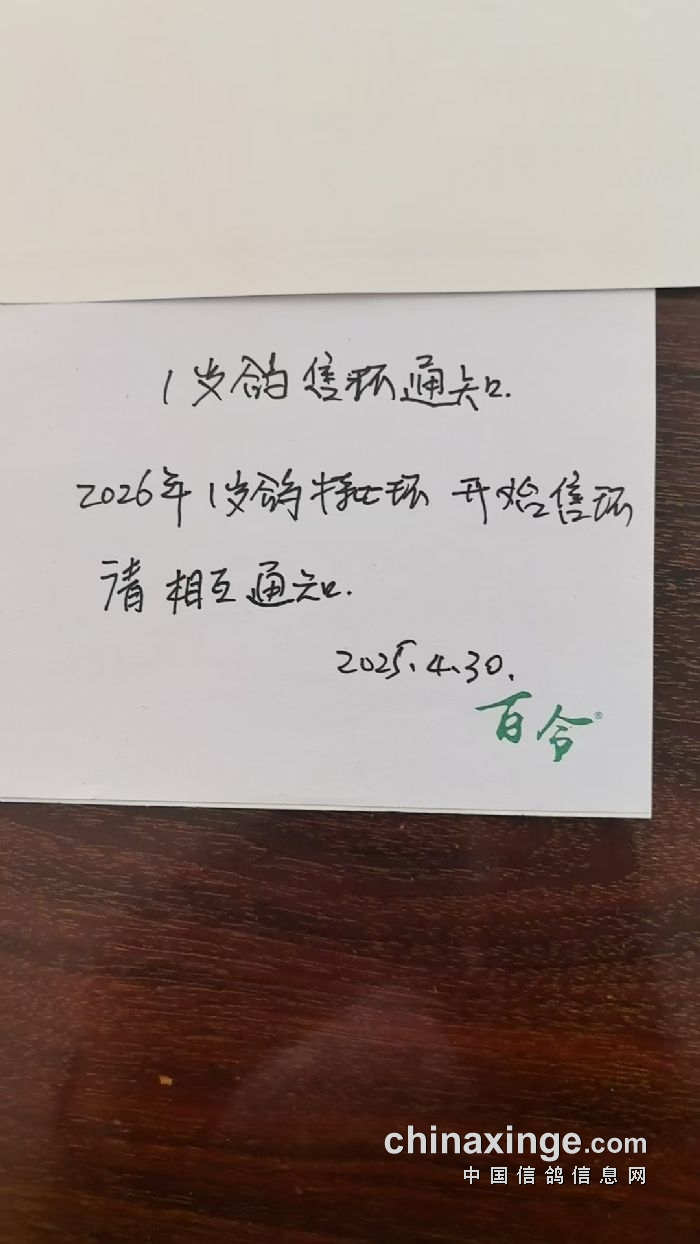 1岁鸽售环通知.
2026年1岁鸽特比环 开始售环
请相互通知.
2025.4.30.
百令®
chinaxinge.com
中国信鸽信息网